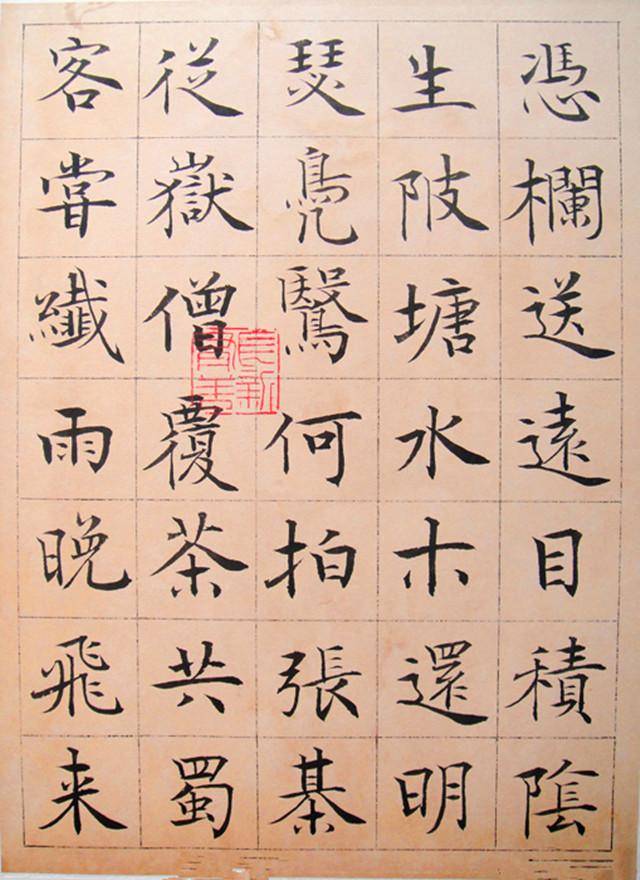 憑欄送遠目積陰
生陂塘水木還明
瑟鳧鷖何拍張棊
從嶽僧覆茶共蜀
客嘗纖雨晚飛来